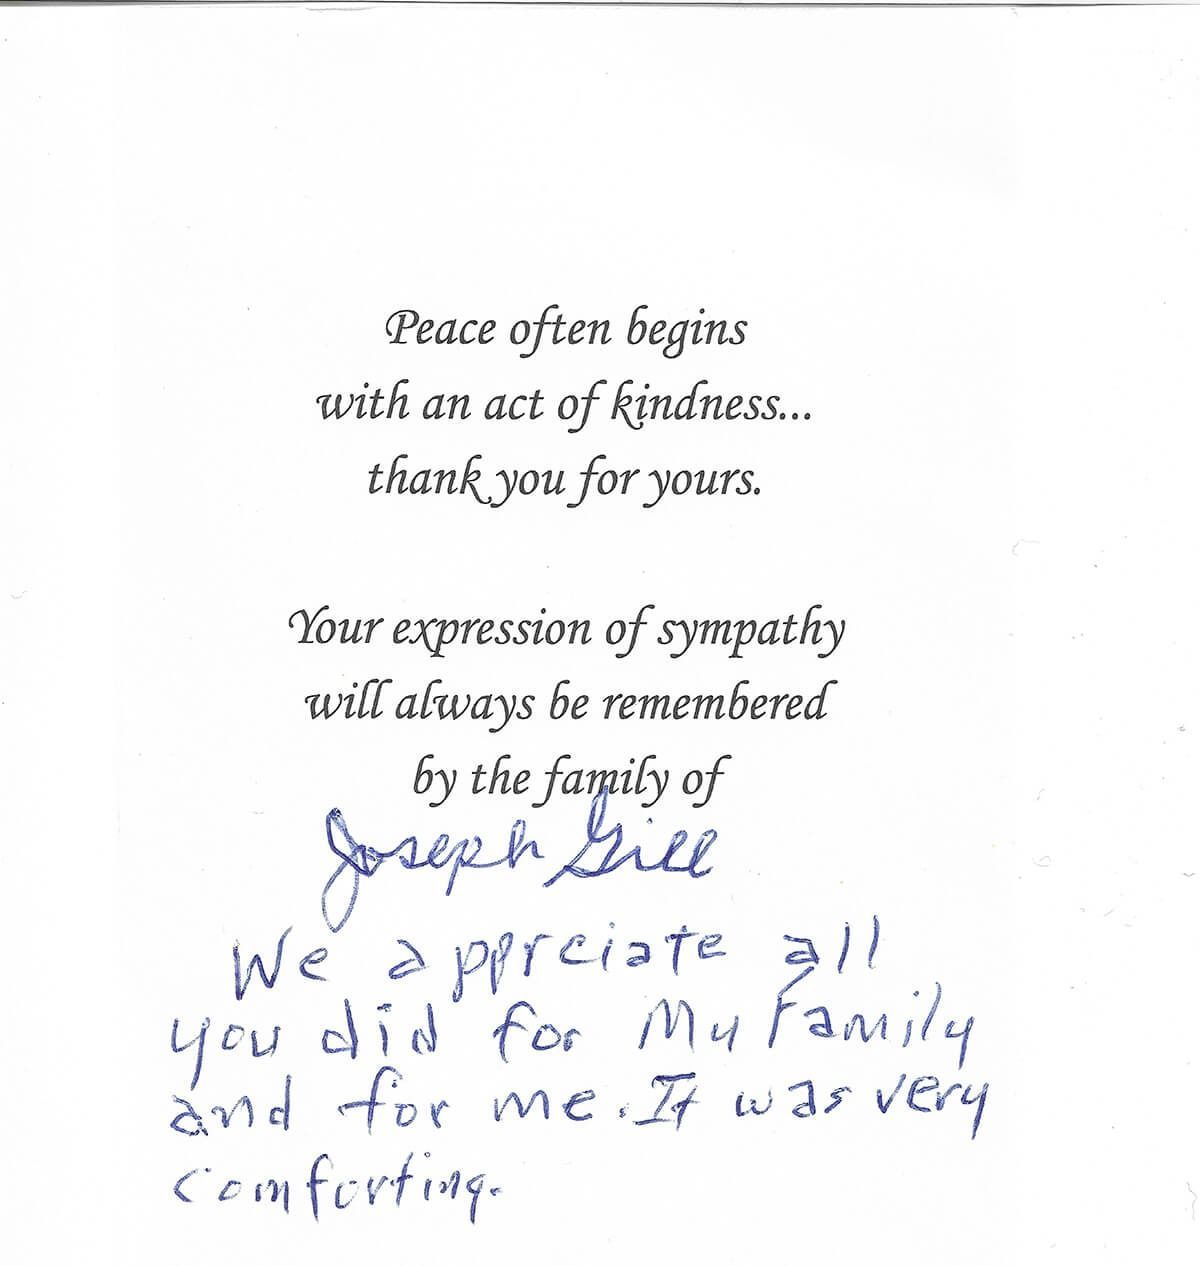 Peace often begins
with an act of kindness...
thank you for yours.
Your expression of sympathy
will always be remembered
by the family of
Joseph Gill
We apprciate all
you did for My Family
and for me. It was very
comforting.